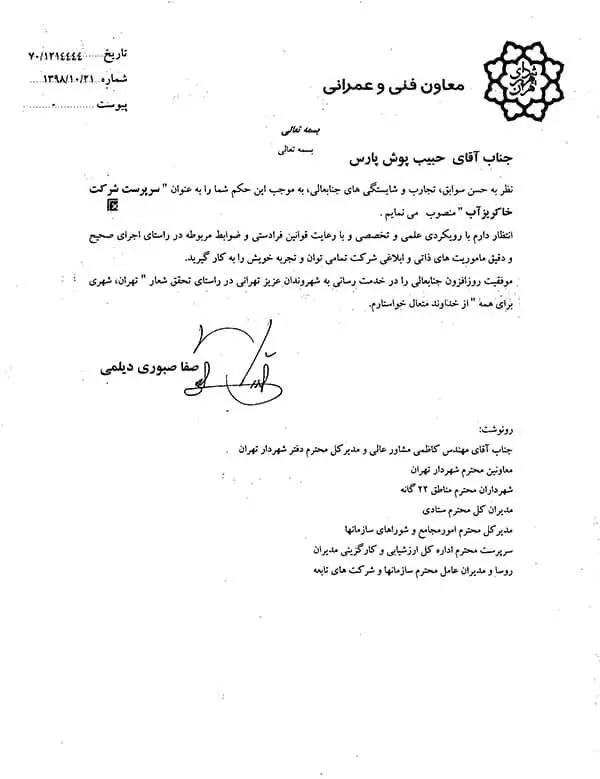 تاریخ ........ ۷۰/۱۲۱۴۴۴۴
شماره ... ۱۳۹۸/۱۰/۲۱
پیوست ....................
شهرداری تهران
معاون فنی و عمرانی
بسمه تعالی
بسمه تعالی
جناب آقای حبیب پوش پارس
نظر به حسن سوابق، تجارب و شایستگی های جنابعالی، به موجب این حکم شما را به عنوان " سرپرست شرکت
خاکریزآب " منصوب می نمایم .
انتظار دارم با رویکردی علمی و تخصصی و با رعایت قوانین فرادستی و ضوابط مربوطه در راستای اجرای صحیح
و دقیق ماموریت های ذاتی و ابلاغی شرکت تمامی توان و تجربه خویش را به کار گیرید.
موفقیت روزافزون جنابعالی را در خدمت رسانی به شهروندان عزیز تهرانی در راستای تحقق شعار " تهران، شهری
برای همه " از خداوند متعال خواستارم.
صفا صبوری دیلمی
رونوشت:
جناب آقای مهندس کاظمی مشاور عالی و مدیرکل محترم دفتر شهردار تهران
معاونین محترم شهردار تهران
شهرداران محترم مناطق ۲۲ گانه
مدیران کل محترم ستادی
مدیرکل محترم امورمجامع و شوراهای سازمانها
سرپرست محترم اداره کل ارزشیابی و کارگزینی مدیران
روسا و مدیران عامل محترم سازمانها و شرکت های تابعه